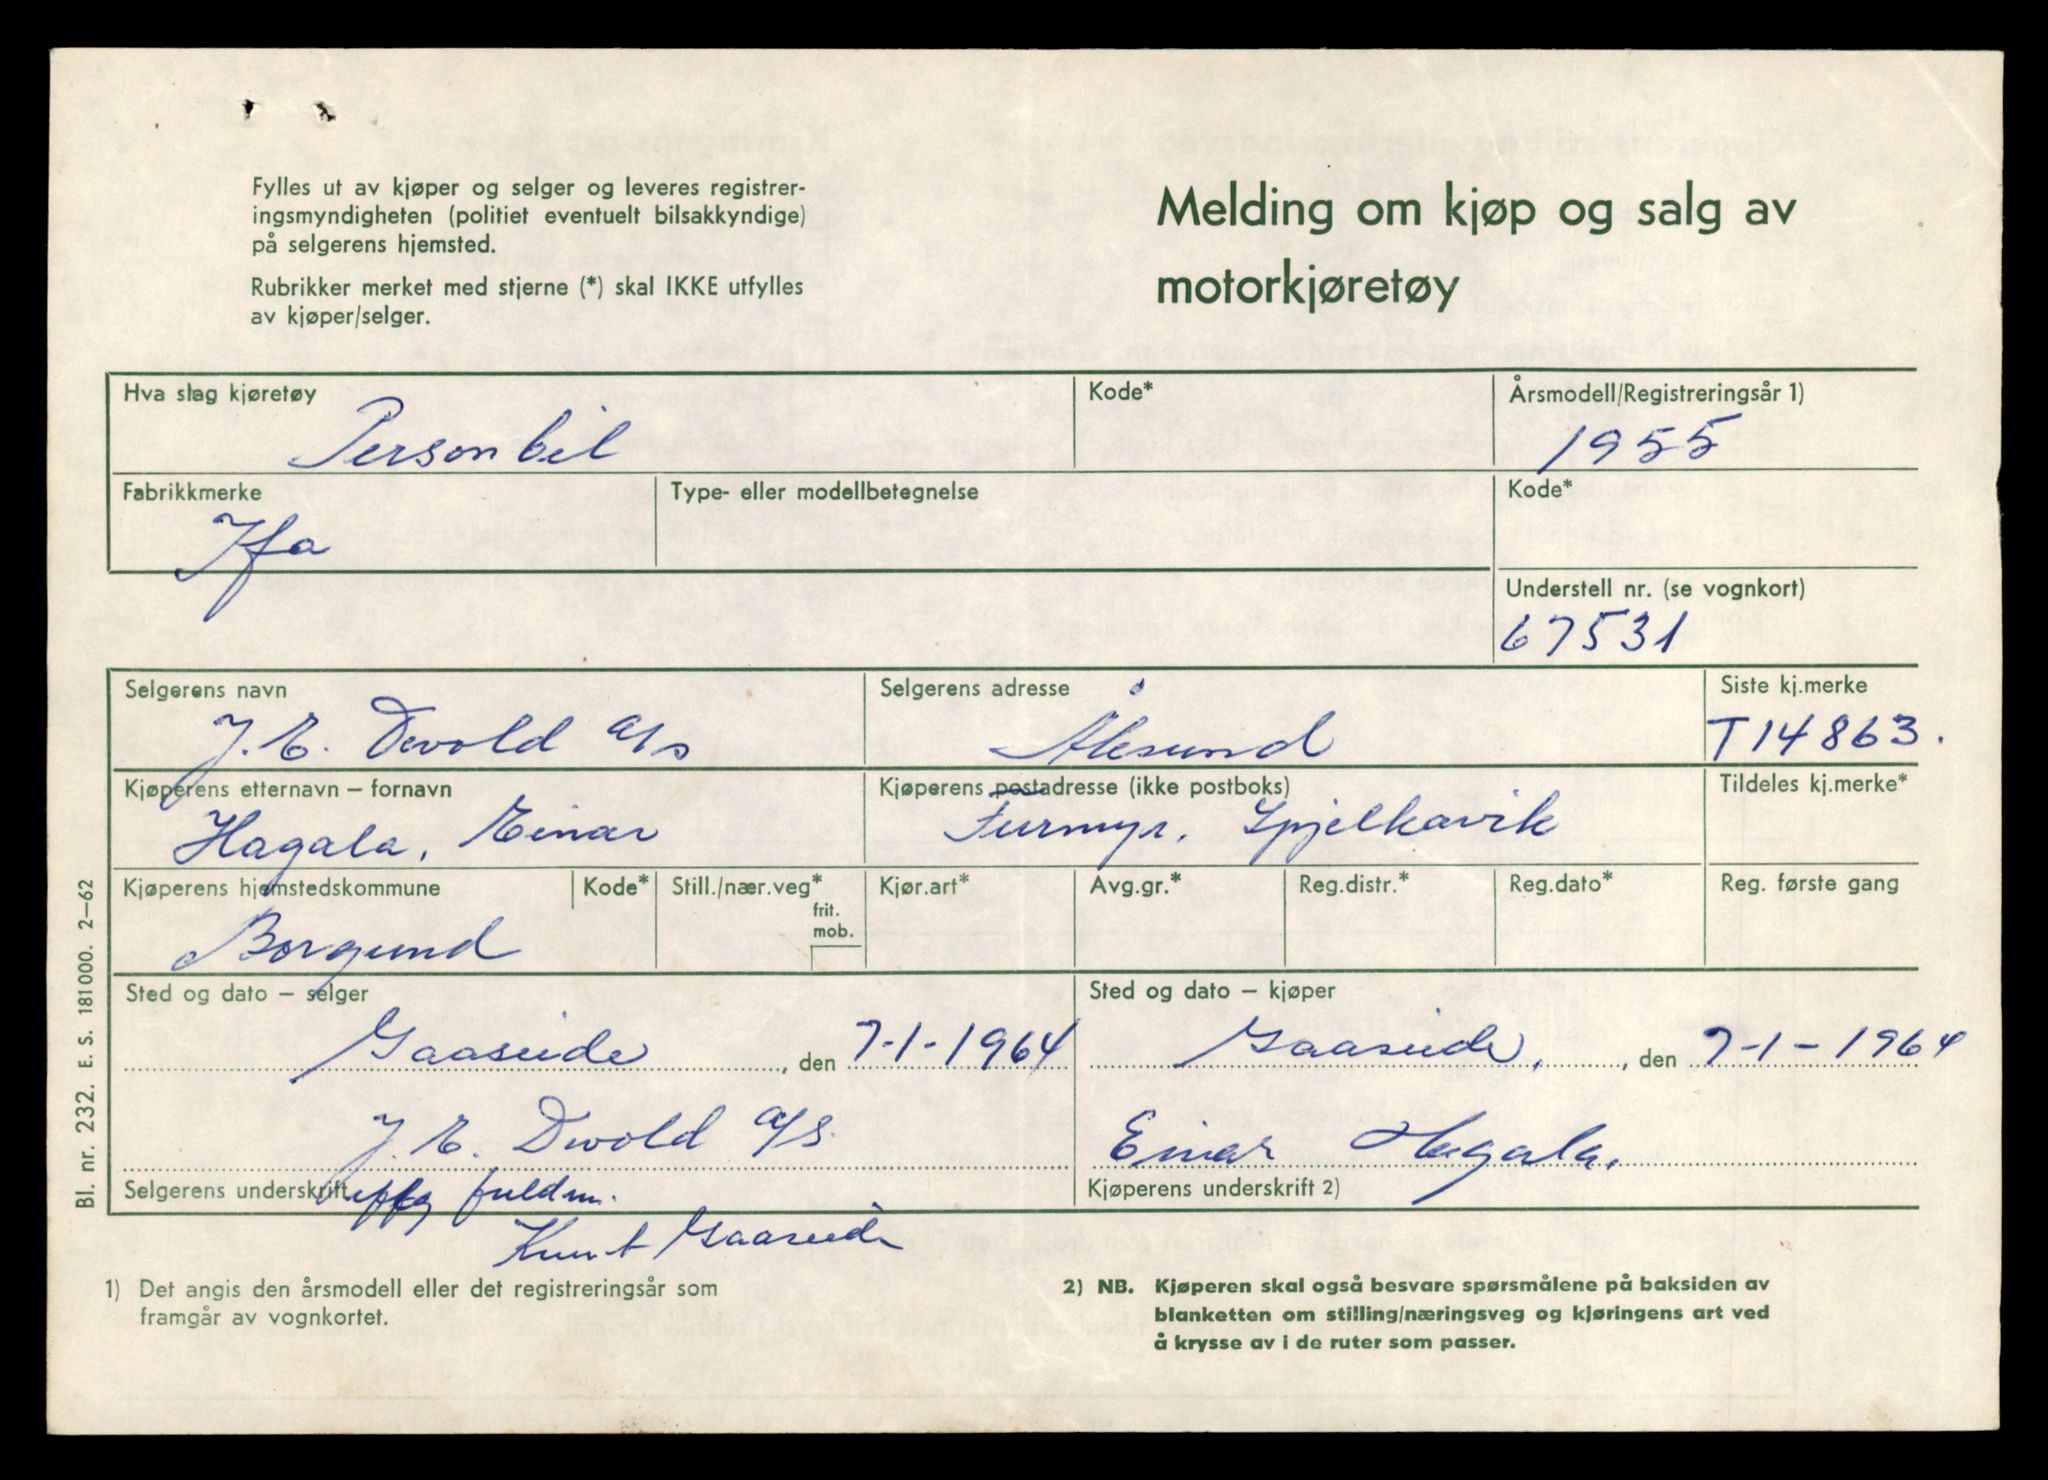 Fylles ut av kjøper og selger og leveres registrer-
ingsmyndigheten (politiet eventuelt bilsakkyndige)
på selgerens hjemsted.
Rubrikker merket med stjerne (*) skal IKKE utfylles
av kjøper/selger.
Melding om kjøp og salg av
motorkjøretøy
Hva slag kjøretøy
Personbil
Kode*
Årsmodell/Registreringsår 1)
1955
Fabrikkmerke
Ifa
Type- eller modellbetegnelse
Kode*
Understell nr. (se vognkort)
67531
Selgerens navn
J. E. Devold a/s
Selgerens adresse
Ålesund
Siste kj.merke
T14863.
Kjøperens etternavn – fornavn
Hagala, Einar
Kjøperens postadresse (ikke postboks)
Furmyr, Spjelkavik
Tildeles kj.merke*
Kjøperens hjemstedskommune
Borgund
Kode*
Still./nær.veg*
frit.
mob.
Kjør.art*
Avg.gr.*
Reg.distr.*
Reg.dato*
Reg. første gang
Sted og dato – selger
Gaaseide, den 7-1-1964
Sted og dato – kjøper
Gaaseide, den 7-1-1964
J. E. Devold a/s.
Selgerens underskrift
fuldm.
Knut Gaaseide
Einar Hagala.
Kjøperens underskrift 2)
1) Det angis den årsmodell eller det registreringsår som
framgår av vognkortet.
2) NB. Kjøperen skal også besvare spørsmålene på baksiden av
blanketten om stilling/næringsveg og kjøringens art ved
å krysse av i de ruter som passer.
Bl. nr. 232. E. S. 181000. 2–62